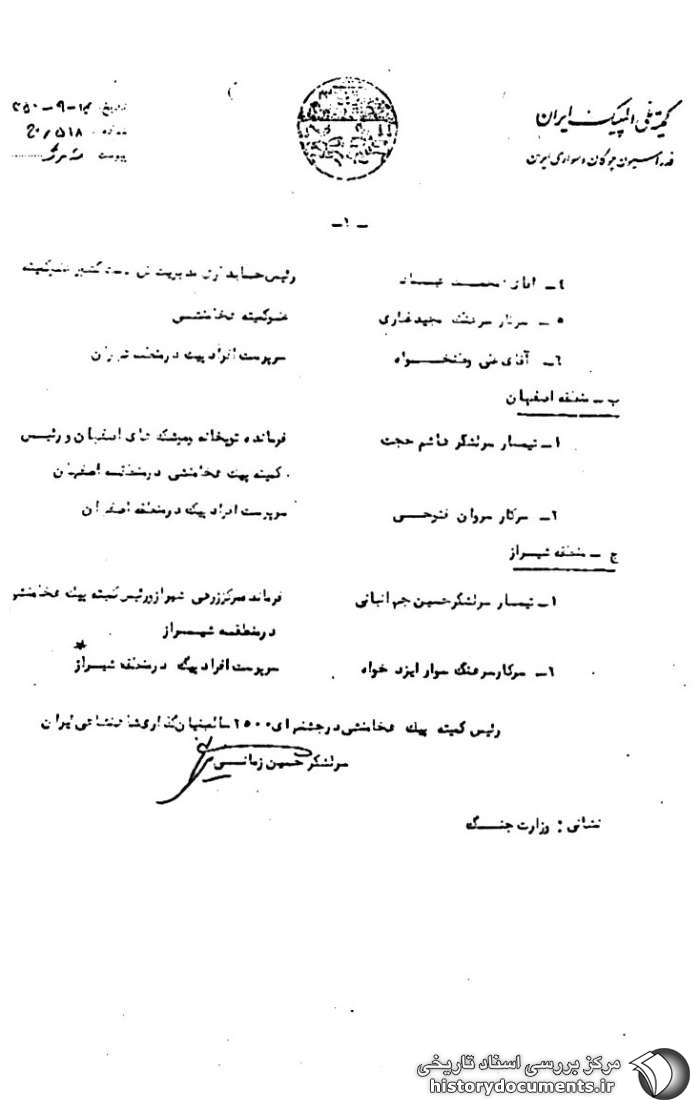 کمیته ملی المپیک ایران
فدراسیون چوگان و سواری ایران
تاریخ
شماره ۲۰/۵۱۸
پیوست
-۱-
۴- آقای محمد رئیس حسابداری مدیریت
۵- سرکار سرهنگ مجید غفاری عضو کمیته هخامنشی
۶- آقای علی وطنخواه سرپرست افراد پیک در منطقه تهران
ب - منطقه اصفهان
۱- تیمسار سرلشگر هاشم حجت فرمانده توپخانه و موشک های اصفهان و رئیس
کمیته پیک هخامنشی در منطقه اصفهان
۲- سرکار سروان فتوحی سرپرست افراد پیک در منطقه اصفهان
ج - منطقه شیراز
۱- تیمسار سرلشگر حسین جهانبانی فرمانده مرکز زرهی شیراز و رئیس کمیته پیک هخامنشی
در منطقه شیراز
۲- سرکار سرهنگ سوار ایزد خواه سرپرست افراد پیک در منطقه شیراز
رئیس کمیته پیک هخامنشی در جشنهای ۲۵۰۰ ساله بنیان گذاری شاهنشاهی ایران
سرلشگر حسین زمانی
نشانی : وزارت جنگ
مرکز بررسی اسناد تاریخی
historydocuments.ir